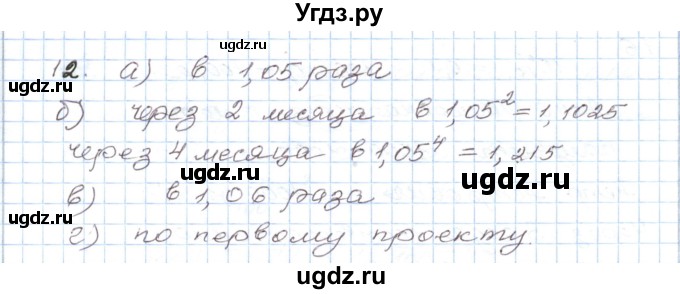 Угдз.ру
ugdz.ru ugdz.ru
12. а) в 1,05 раза
ugdz.ru
б) через 2 месяца в 1,05² = 1,1025
через 4 месяца в 1,05⁴ = 1,215
ugdz.ru ugdz.ru
в) в 1,06 раза
ugdz.ru
г) по первому проекту.
ugdz.ru
ugdz.ru